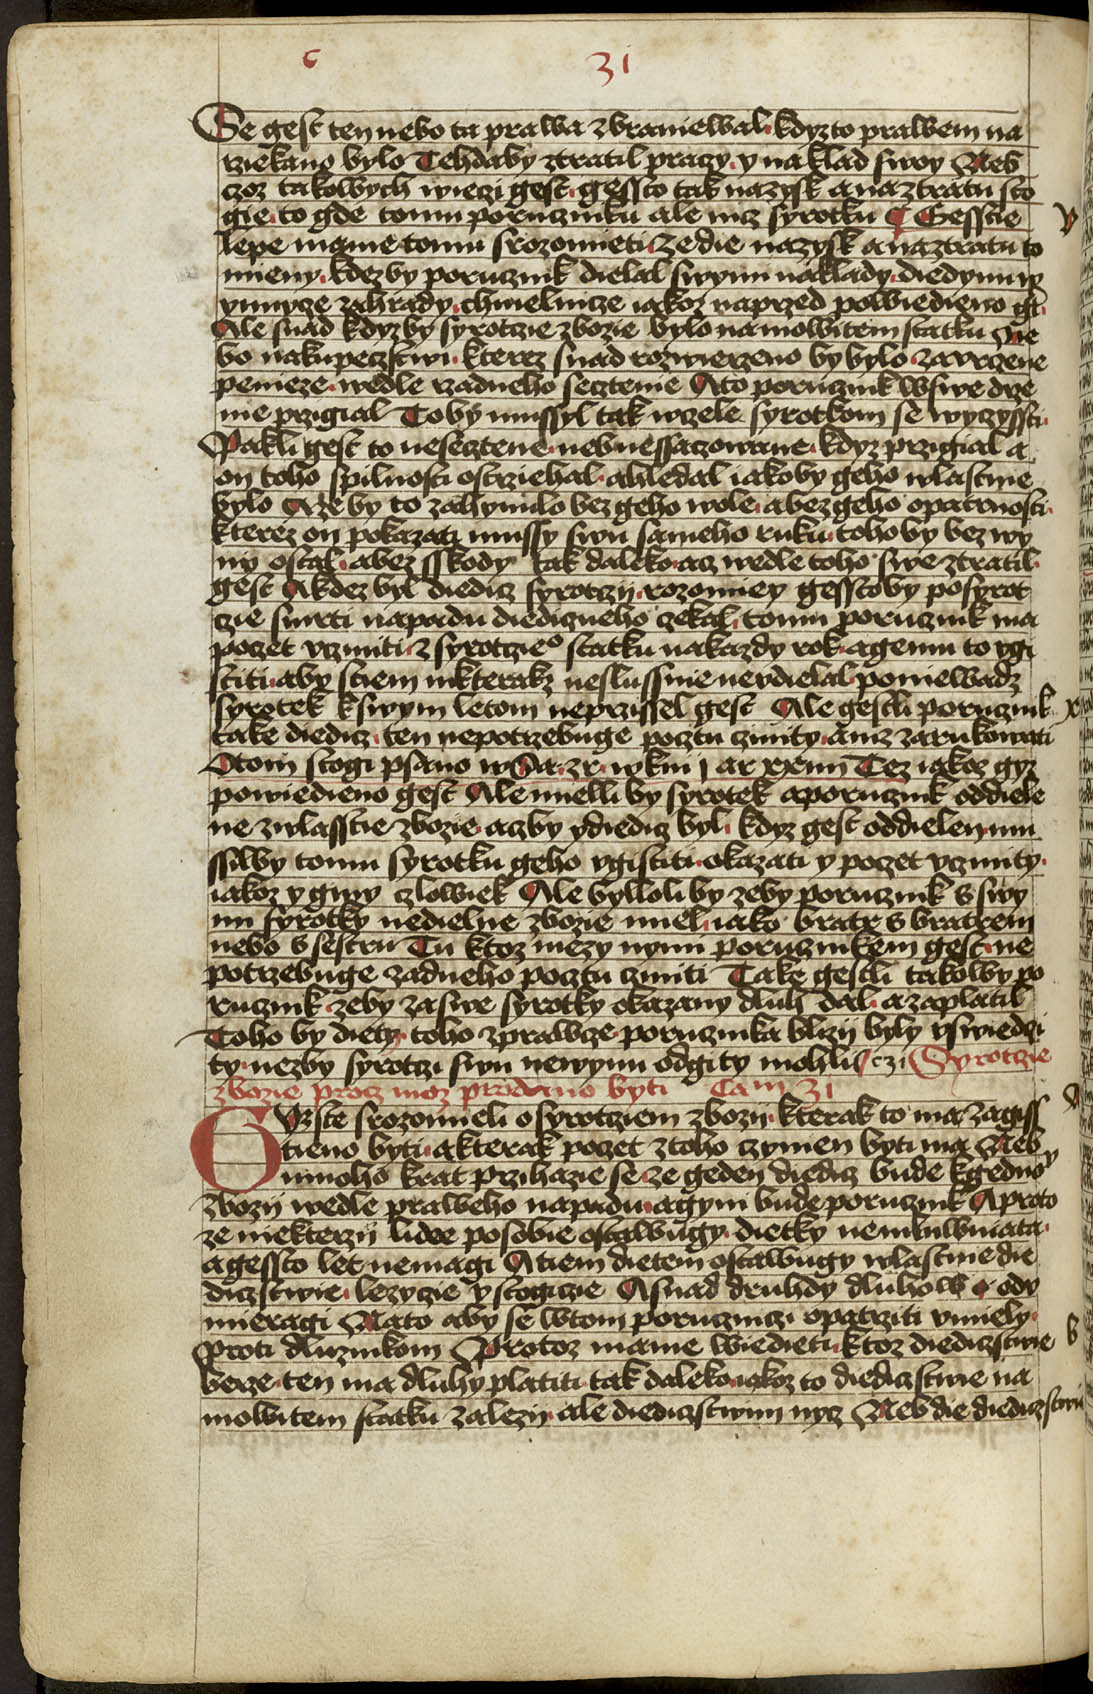 c 31
Se gest ten nebo ta prawa zbraniewal kdyzto prawem na
rziekano bylo Tehdaby ztratil praczy y naklad swoy Neb
czoz takowych wieczi gest gessto tak nazysk a naztratu sto
gie to gde tomu poruczniku ale nicz syrotku Gesscie
lepe mame tomu srozomieti ze die nazysk a naztratu to
mieny kdezby porucznik dielal swymi naklady diedyniny
wynnycze zahrady chmelnicze iakoz naprzed powiedieno gt
Ale snad kdyzby syrotczie zbozie bylo namowitem statku Ne
bo nakupecztwi kterez snad rozwierzeno by bylo zavrczene
penieze wedle rzadneho secztenie Ato porucznik wswe drze
nie przigial Toby mussyl tak wczele syrotkom se wyczyssti
Pakli gest to nesecztene neb nessaczowane kdyz przigial a
on toho spilnosti ostrziehal ahledal iakoby geho wlastnie
bylo Azeby to zahynulo bez geho wole abez geho opatrnosti
kterez on pokazatz mussy swu sameho ruku tohoby bez wy
ny ostal abez sskody tak daleko acz wedle toho swe ztratil
gest Akdez byl diedicz syrotczij rozomiey gesstoby posyrot
czie smrti napadu diediczneho czekal tomu porucznik ma
poczet vcziniti z syrotczieo statku nakazdy rok agemu to vgi
stiti aby stiem nikterakz neslussnie nevdielal poniewadz
syrotek kswym letom neprzissel gest Ale gestli porucznik
take diedicz ten nepotrzebuge pocztu cziniti aniz zarukowati
Otom stogi psano wSa zr wkni j ar xxiiii Tez iakoz gyz
powiedieno gest Ale mielliby syrotek aporucznik oddiele
ne zwlasstie zbozie aczby ydiedicz byl kdyz gest oddelen mu
ssilby tomu syrotku geho vgistiti okazati y poczet vcziniti
iakoz y giny czlowiek Ale bylloliby zeby porucznik s swy
mi syrotky nedielne zbozie miel iako bratr s bratrem
nebo s sestru Tu ktoz mezy nymi porucznikem gest ne
potrzebuge zadneho pocztu cziniti Take gestli takowy po
rucznik zeby zaswe syrotky okazany dluh dal azaplatil
Toho by dietcz toho zprawcze porucznika blizij byly vswiedczi
ty nezby syrotczi swu newynu odgity mohli czi Syrotczie
zbozie procz moz prodano byti Cam 31
GIz ste srozomieli osyrotcziem zbozij kterak to ma zagiss
tieno byti akterak poczet ztoho czynien byti ma Neb
mnoho krat przihazie se ze geden diedicz bude kgedno
zbozij wedle praweho napadu agyni bude porucznik Aproto
ze niekterzij lidee posobie ostawugy dietky nemluwniata
agessto let nemagi Atiem dietem ostawugy wlastnie die
dicztwie lezycie y stogicze Asnad druhdy dluhow ody
mieragi Nato aby se wtom porucznici opatrziti vmiely
Proti dluznikom Protoz mame wiedieti ktoz diedicztwie
berze ten ma dluhy platiti tak daleko iakoz to diedicztwie na
mowitem statku zalezij ale diedicztwim nycz Neb die diedicztwi